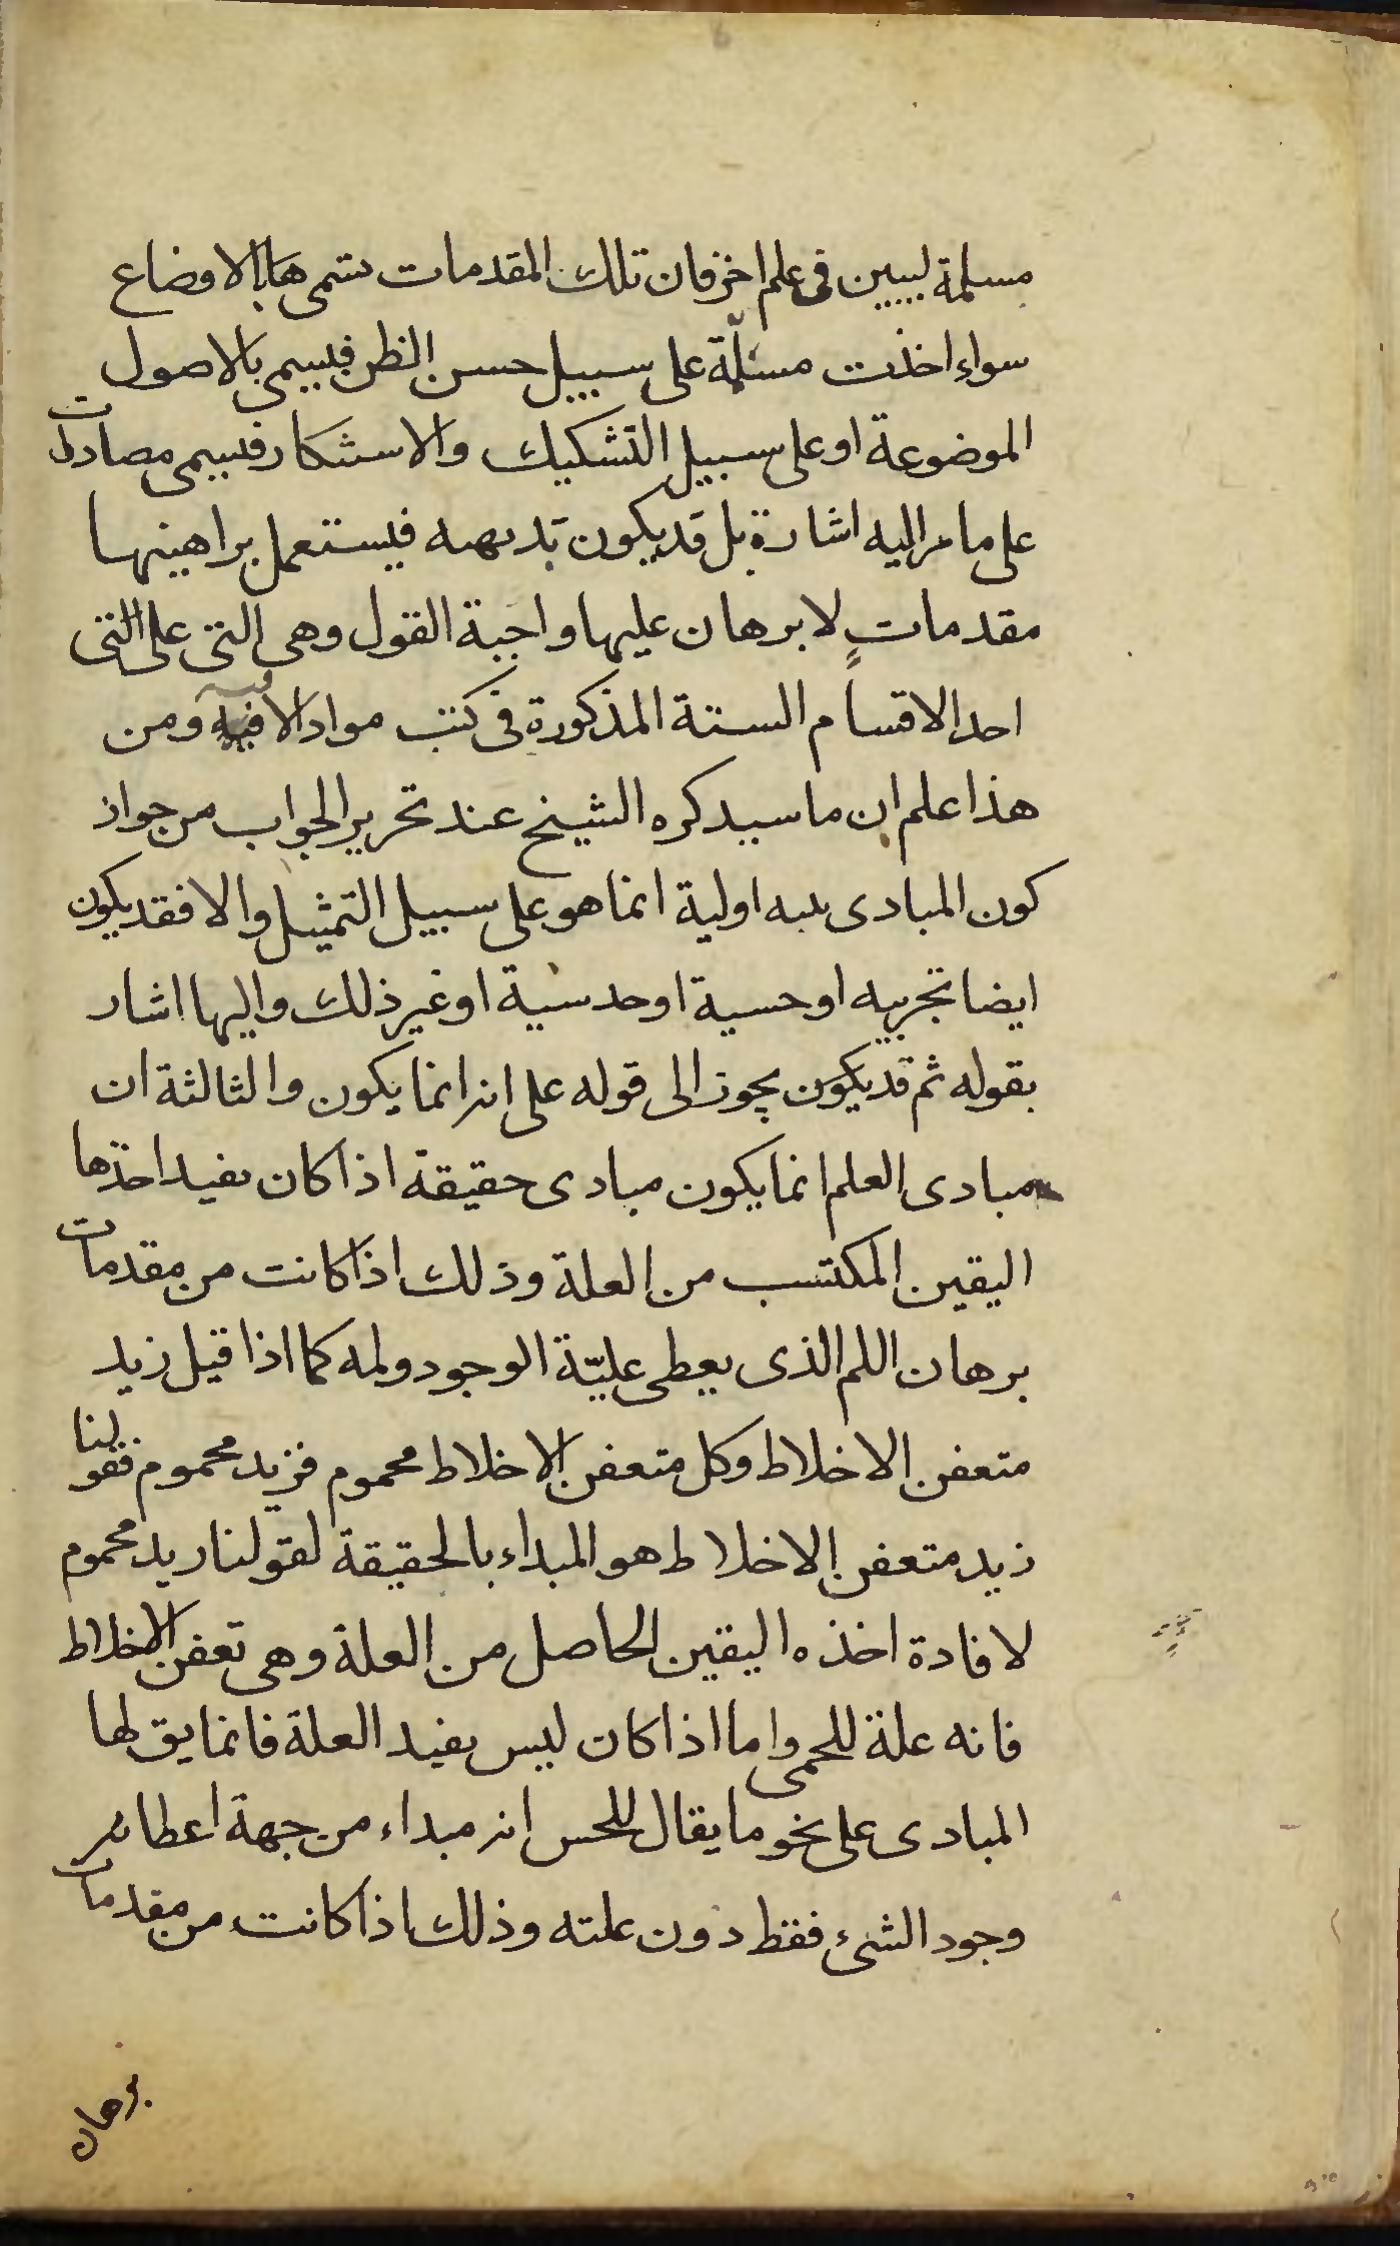 مسلمة ليبين فى علم اخر فان تلك المقدمات تسمى هنا بالاوضاع
سواء اخذت مسلّمة على سبيل حسن الظن فيسمى بالاصول
الموضوعة او على سبيل التشكيك والاستنكار فيسمى مصادرات
على ما مر اليه اشارة بل قد يكون بديهيه فيستعمل براهينها
مقدماتٍ لا برهان عليها واجبة القول وهى التى على التى
احد الاقسام الستة المذكورة فى كتب مواد الاقيسه ومن
هذا علم ان ما سيذكره الشيخ عند تحرير الجواب من جواز
كون المبادى بينه اولية انما هو على سبيل التمثيل والا فقد يكون
ايضا تجربيه او حسية او حدسية او غير ذلك واليها اشار
بقوله ثم قد يكون يجوز الى قوله على انه انما يكون والثالثة ان
مبادى العلم انما يكون مبادى حقيقة اذا كان يفيد اخذها
اليقين المكتسب من العلة وذلك اذا كانت من مقدمات
برهان اللم الذى يعطى عليّة الوجود ولمه كما اذا قيل زيد
متعفن الاخلاط وكل متعفن الاخلاط محموم فزيد محموم فقولنا
زيد متعفن الاخلاط هو المبداء بالحقيقة لقولنا زيد محموم
لافادة اخذه اليقين الحاصل من العلة وهى تعفن الاخلاط
فانه علة للحمى واما اذا كان ليس يفيد العلة فانما يق لها
المبادى على نحو ما يقال للحس انه مبداء من جهة اعطائه
وجود الشىء فقط دون علته وذلك اذا كانت من مقدمات
برهان